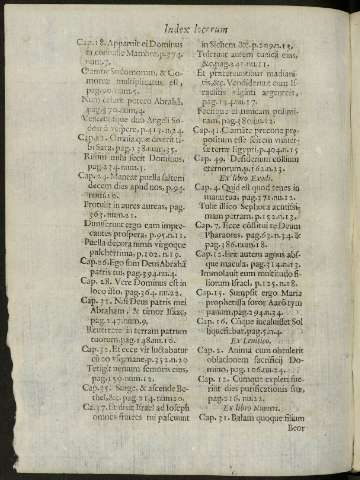 Index locorum
Cap. 18. Apparuit ei Dominus
in convalle Mambre, p. 374.
num. 7.
Clamor Sodomorum, & Go-
morræ multiplicatus est,
pag. num. 5.
Num celare potero Abrahã,
pag. num. 4.
duo Angeli So-
domã vespere, p. 413. n. 24.
quæ dixerit ti-
bi Sara, pag. 138. num. 35.
Risum mihi fecit Dominus,
pag. 234. num. 5.
Cap. 24. Maneat puella saltem
decem dies apud nos, p. 94.
num. 10.
Protulit in aures aureas, pag.
363. num. 21.
Dimiserunt ergo eam impre-
cantes prospera, p. 95. n. 12.
Puella decora nimis virgoque
pulcherrima, p. 102. n. 19.
Cap. 26. Ego sum Deus Abrahã
patris tui, pag. 394. n. 4.
Cap. 28. Vere Dominus est in
loco isto, pag. 364. n. 22.
Cap. 31. Nisi Deus patris mei
Abraham, & timor Isaac,
pag. 247. num. 9.
Revertere in terram patrum
tuorum, pag. 148. nu. 16.
Cap. 32. Et ecce vir luctabatur
cũ eo usq; mane, p. 352. n. 20
Tetigit nervum femoris eius,
pag. 150. num. 12.
Cap. 35. Surge, & ascende Be-
thel, &c. pag. 214. num 20.
Cap. 37. Israel ad Ioseph
omnes fratres tui pascunt
in Sichem &c. p. 209. n. 13.
Tulerunt autem eius,
&c. pag. 141. nu. 11.
Et prætereuntibus madiani-
tis, &c. Vendiderunt eum Is-
raelitis viginti argenteis,
pag. 134. nu. 17.
Fecitque ei tunicam polimi-
tam, pag. 180. n. 12.
Cap. 41. Clamāte præcone præ-
positum esse scirent univer-
sæ terræ Egypti, p. 404. n. 15
Cap. 49. Desiderium collium
æternorum, p. 162. n. 13.
Ex libro Exodi.
Cap. 4. Quid est quod tenes in
manu tua, pag. 171. nu. 12.
Tulit illico Sephora acutissi-
mam petram, p. 152. n. 13.
Cap. 7. Ecce cõstitui te Deum
Pharaonis, pag. 69. n. 34. &
pag. 186. num. 18.
Cap. 12. Erit autem agnus abs-
que macula, pag. 314. n. 12.
Immolavit eum multitudo fi-
liorum Israel, p. 125. n. 18.
Cap. 15. Sumpsit ergo Maria
prophetissa soror Aarõ tym
panum, pag. 294. n. 34.
Cap. 16. Cũque incaluisset Sol
liquefiebat, pag. 5. n. 4.
Ex Levitico.
Cap. 2. Anima cum obtulerit
oblationem sacrificij Do-
mino, pag. 106. nu. 24.
Cap. 12. Cumque expleti fue-
rint dies purificationis suæ,
pag. 216. nu. 22.
Ex libro Numeri.
Cap. 31. Balam quoque filium
Beor